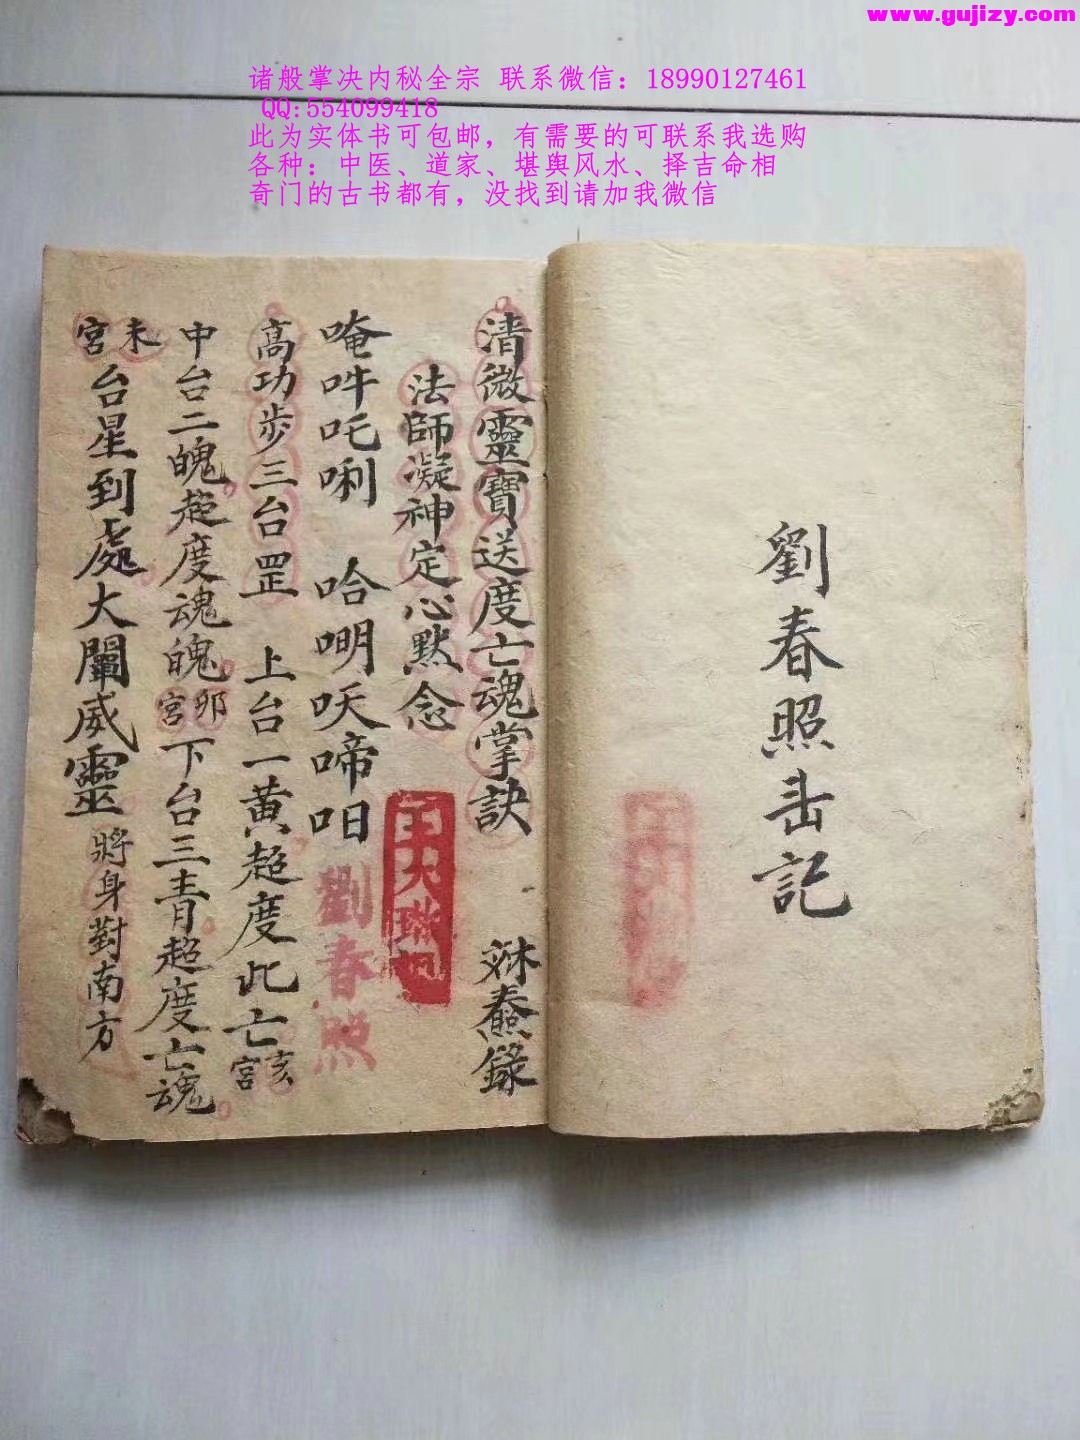 www.gujizy.com
诸般掌决内秘全宗 联系微信：18990127461
QQ:554099418
此为实体书可包邮，有需要的可联系我选购
各种：中医、道家、堪舆风水、择吉命相
奇门的古书都有，没找到请加我微信
劉春照击記
清微靈寶送度亡魂掌訣 錄
法師凝神定心默念
唵吽吒唎 哈㗊啼呾
劉春照
高功步三台罡 上台一黄超度此亡亥宮
中台二魄超度魂魄卯宮下台三青超度亡魂
未宮台星到處大闡威靈將身對南方